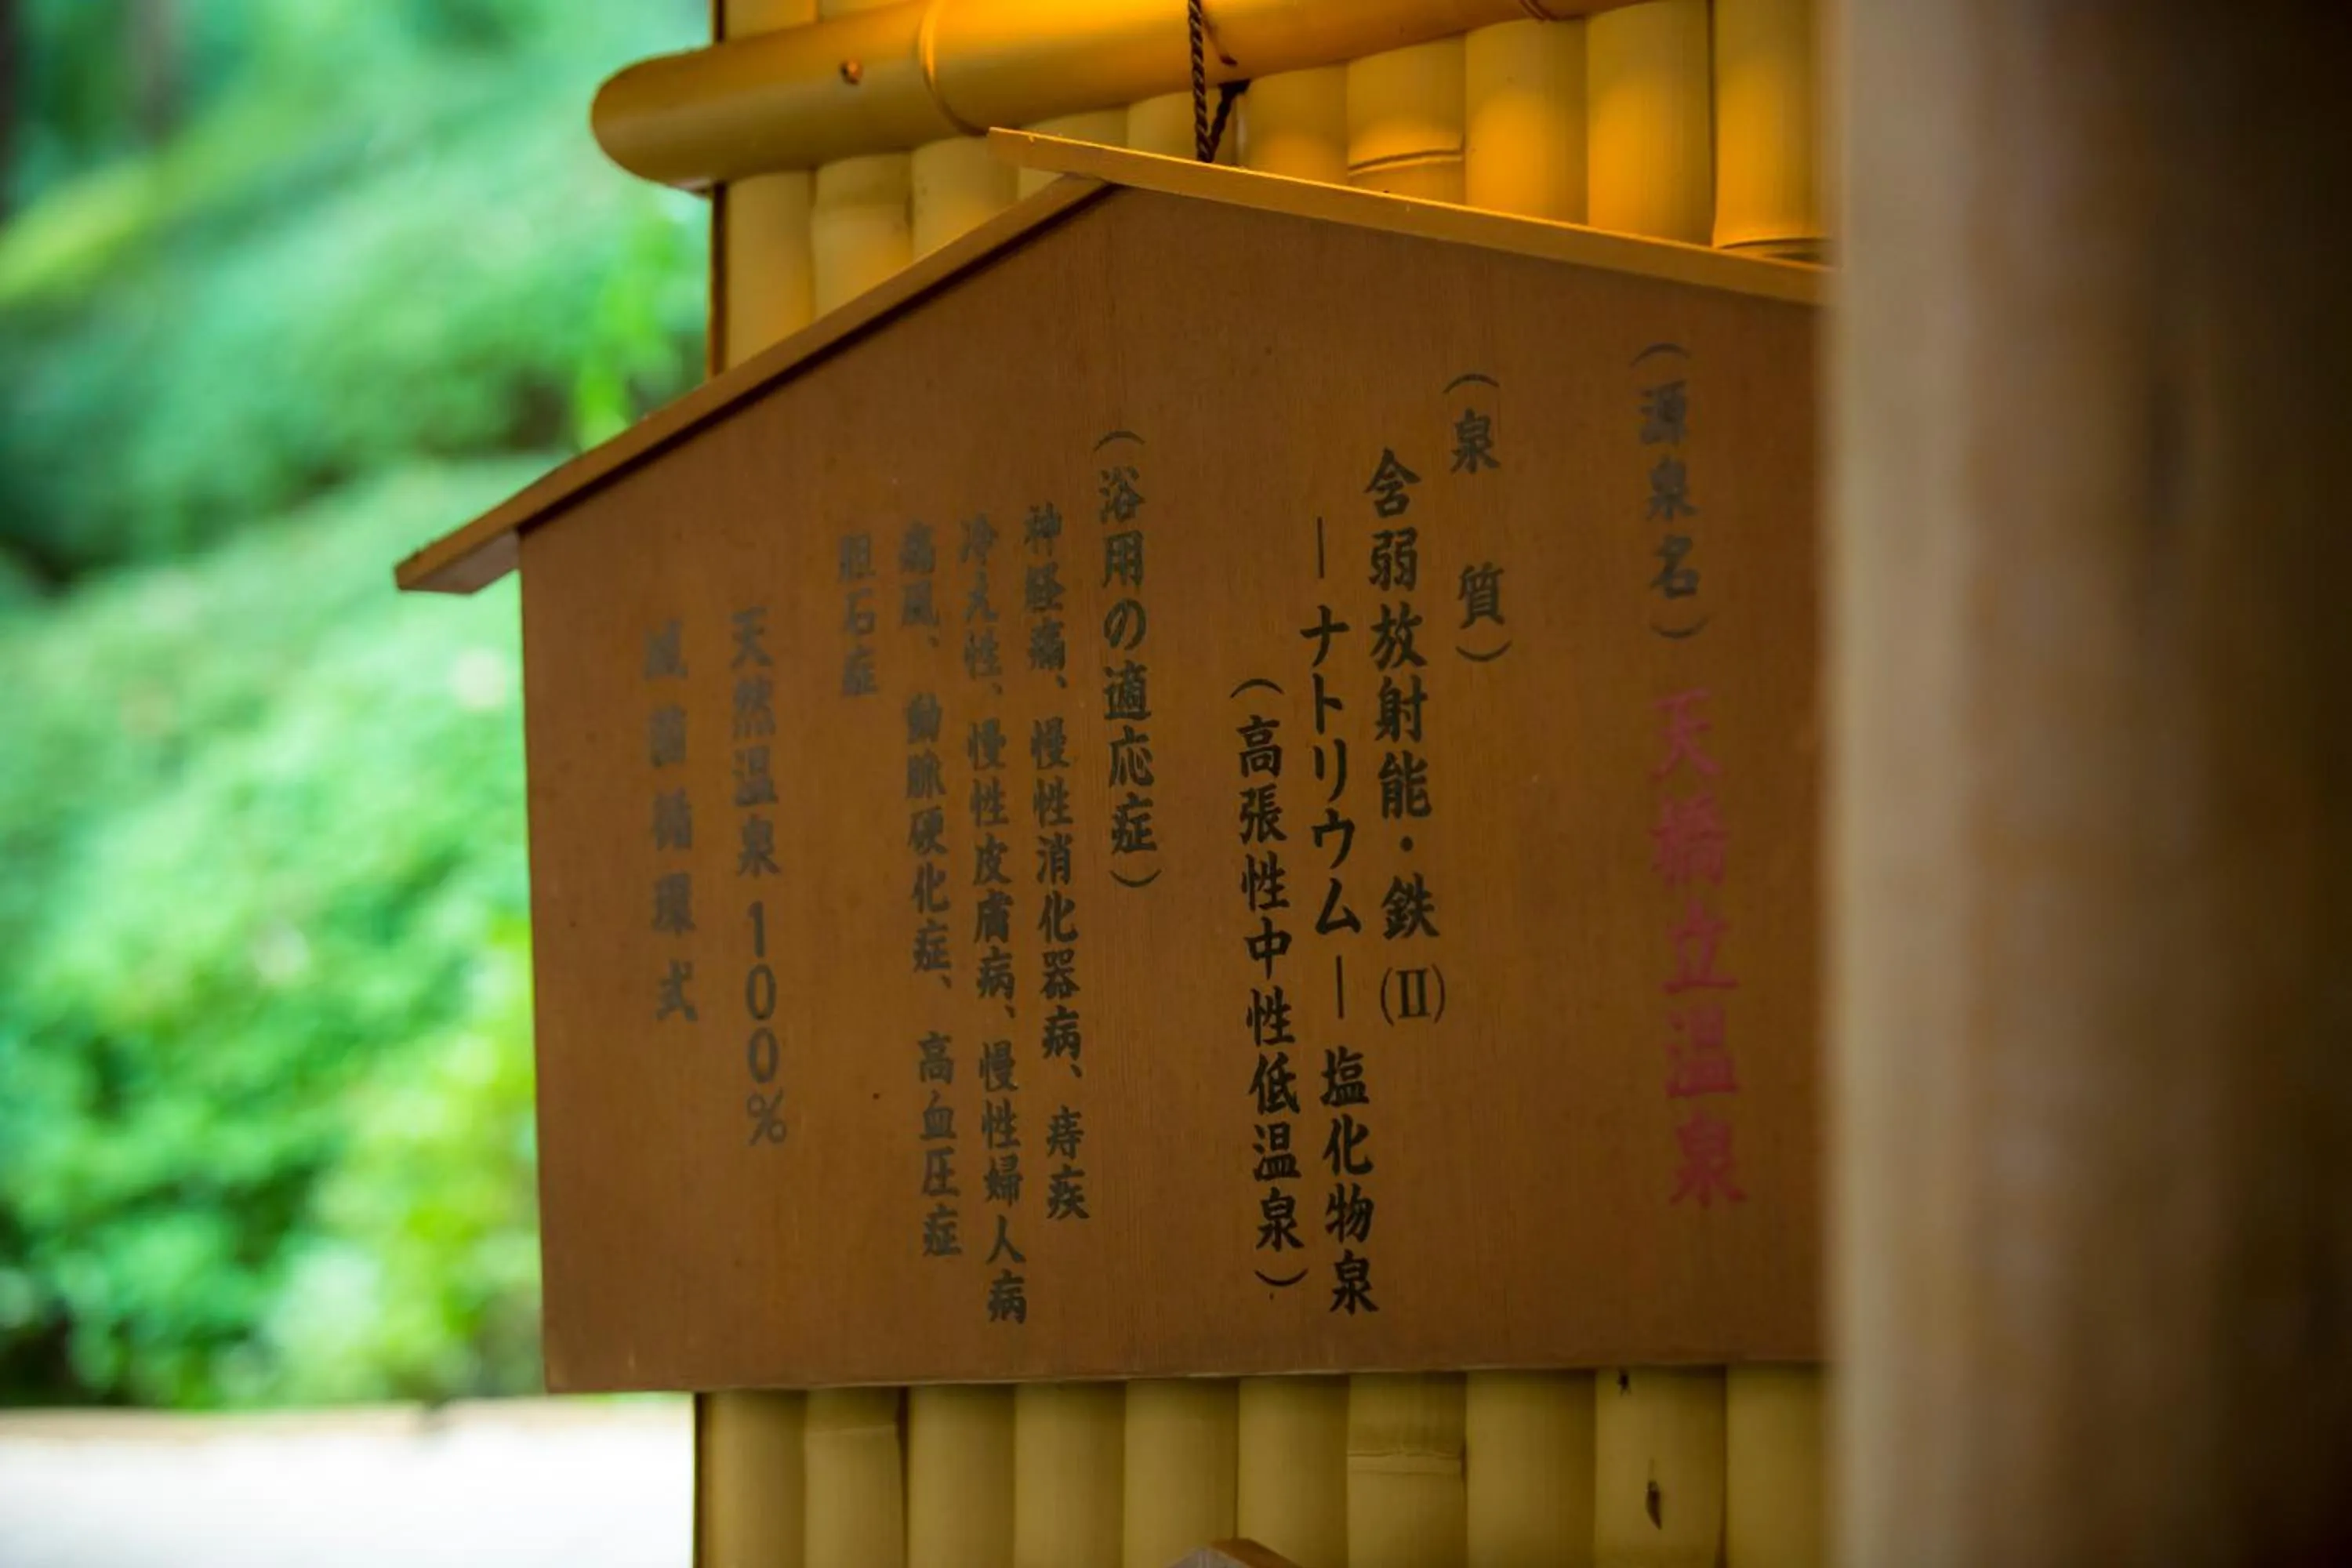 （源泉名）天橋立温泉
（泉質）
含弱放射能・鉄(Ⅱ)
―ナトリウム―塩化物泉
（高張性中性低温泉）
（浴用の適応症）
神経痛、慢性消化器病、痔疾
冷え性、慢性皮膚病、慢性婦人病
痛風、動脈硬化症、高血圧症
胆石症
天然温泉100％
滅菌循環式